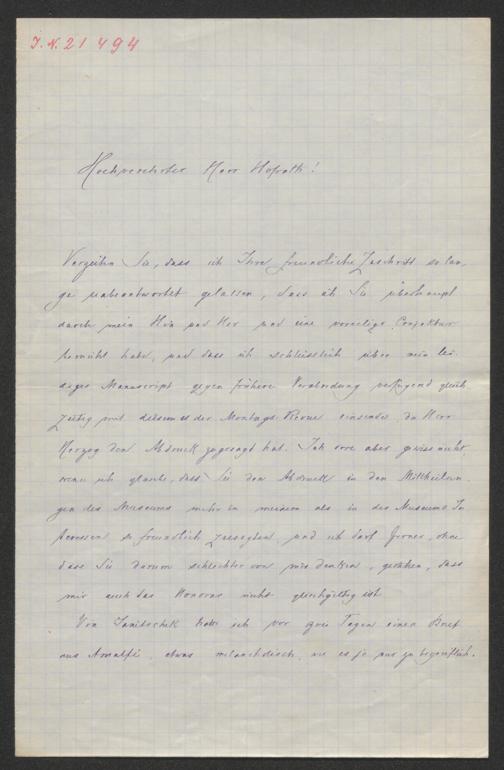 J.N. 21494
Hochverehrter Herr Hofrath!
Verzeihen Sie, dass ich Ihre freundliche Zuschrift so lan-
ge unbeantwortet gelassen, dass ich Sie überhaupt
durch mein Hin und Her und eine voreilige Conjektur
bemüht habe, und dass ich schliesslich über mein lei-
diges Manuscript gegen frühere Verabredung verfügend gleich-
zeitig mit diesem es der Montags-Revue einsende, da Herr
Herzog den Abdruck zugesagt hat. Ich irre aber gewiss nicht,
wenn ich glaube, dass Sie den Abdruck in den Mittheilun-
gen des Museums mehr in meinem als in des Museums In-
teressen so freundlich zusagten, und ich darf Ihnen, ohne
dass Sie darum schlechter von mir denken, gestehen, dass
mir auch das Honorar nicht gleichgültig ist.
Von Janitschek habe ich vor zwei Tagen einen Brief
aus Amalfi, etwas melancholisch, wie es ja nur zu begreiflich.